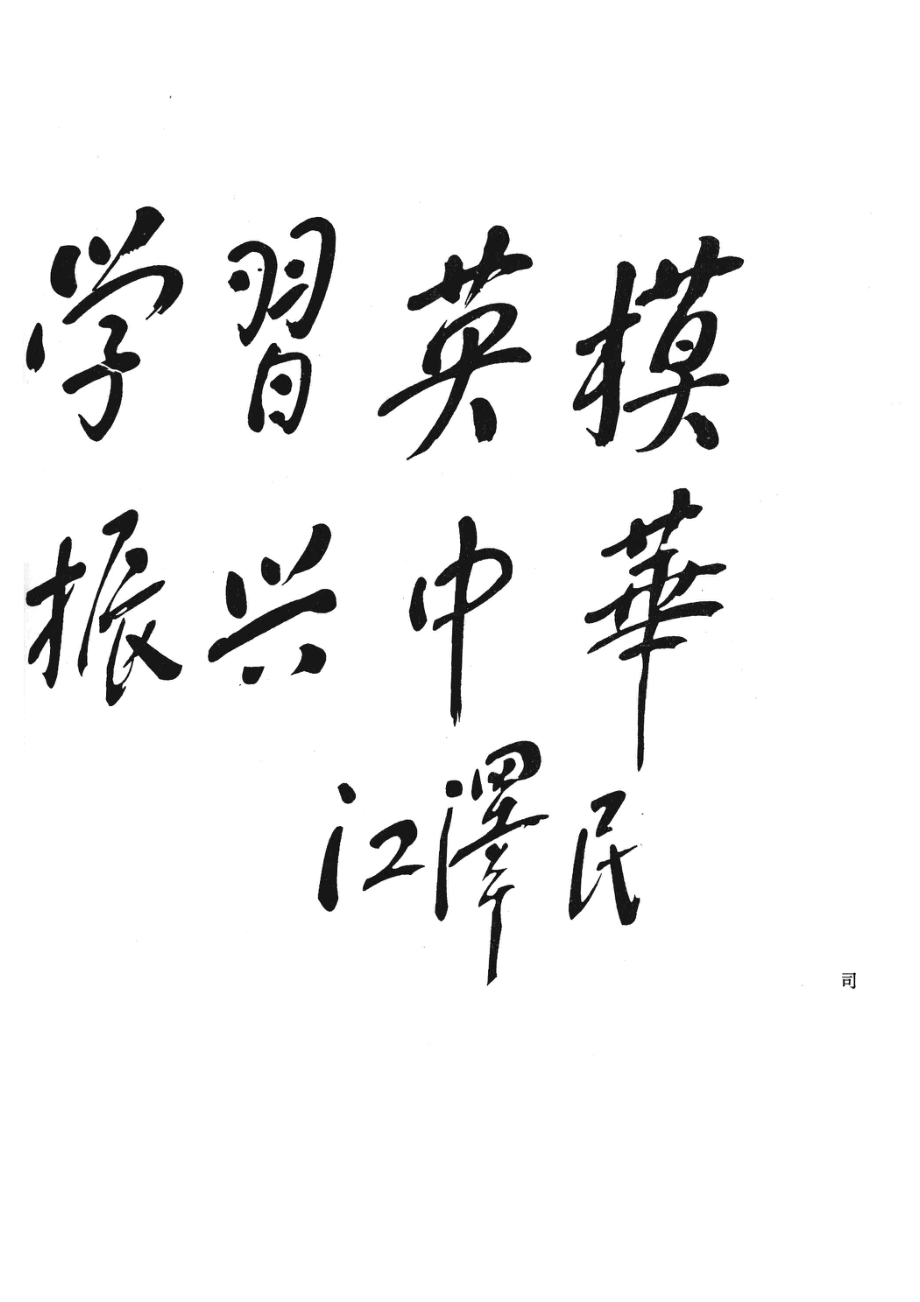 学習英模
振兴中華
江澤民
司